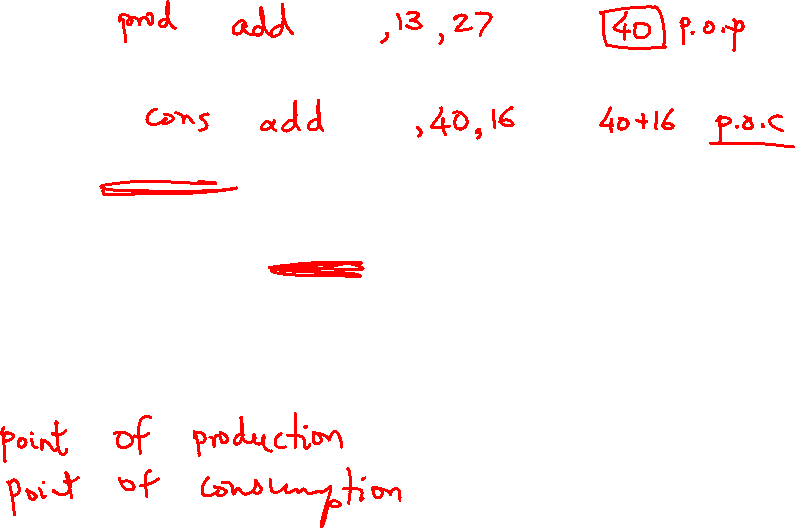 prod add , 13 , 27 40 p.o.p
cons add , 40 , 16 40+16 p.o.c
point of production
point of consumption